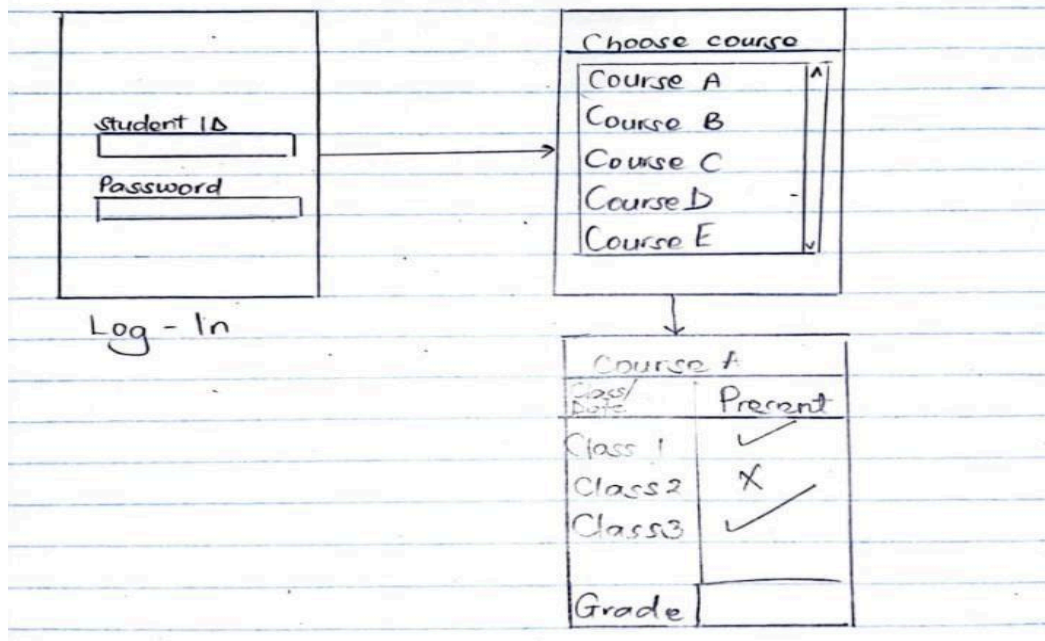 Student ID
Password
Log-In
Choose course
Course A
Course B
Course C
Course D
Course E
Course A
Class/
Date
Present
Class 1
Class 2
Class 3
Grade